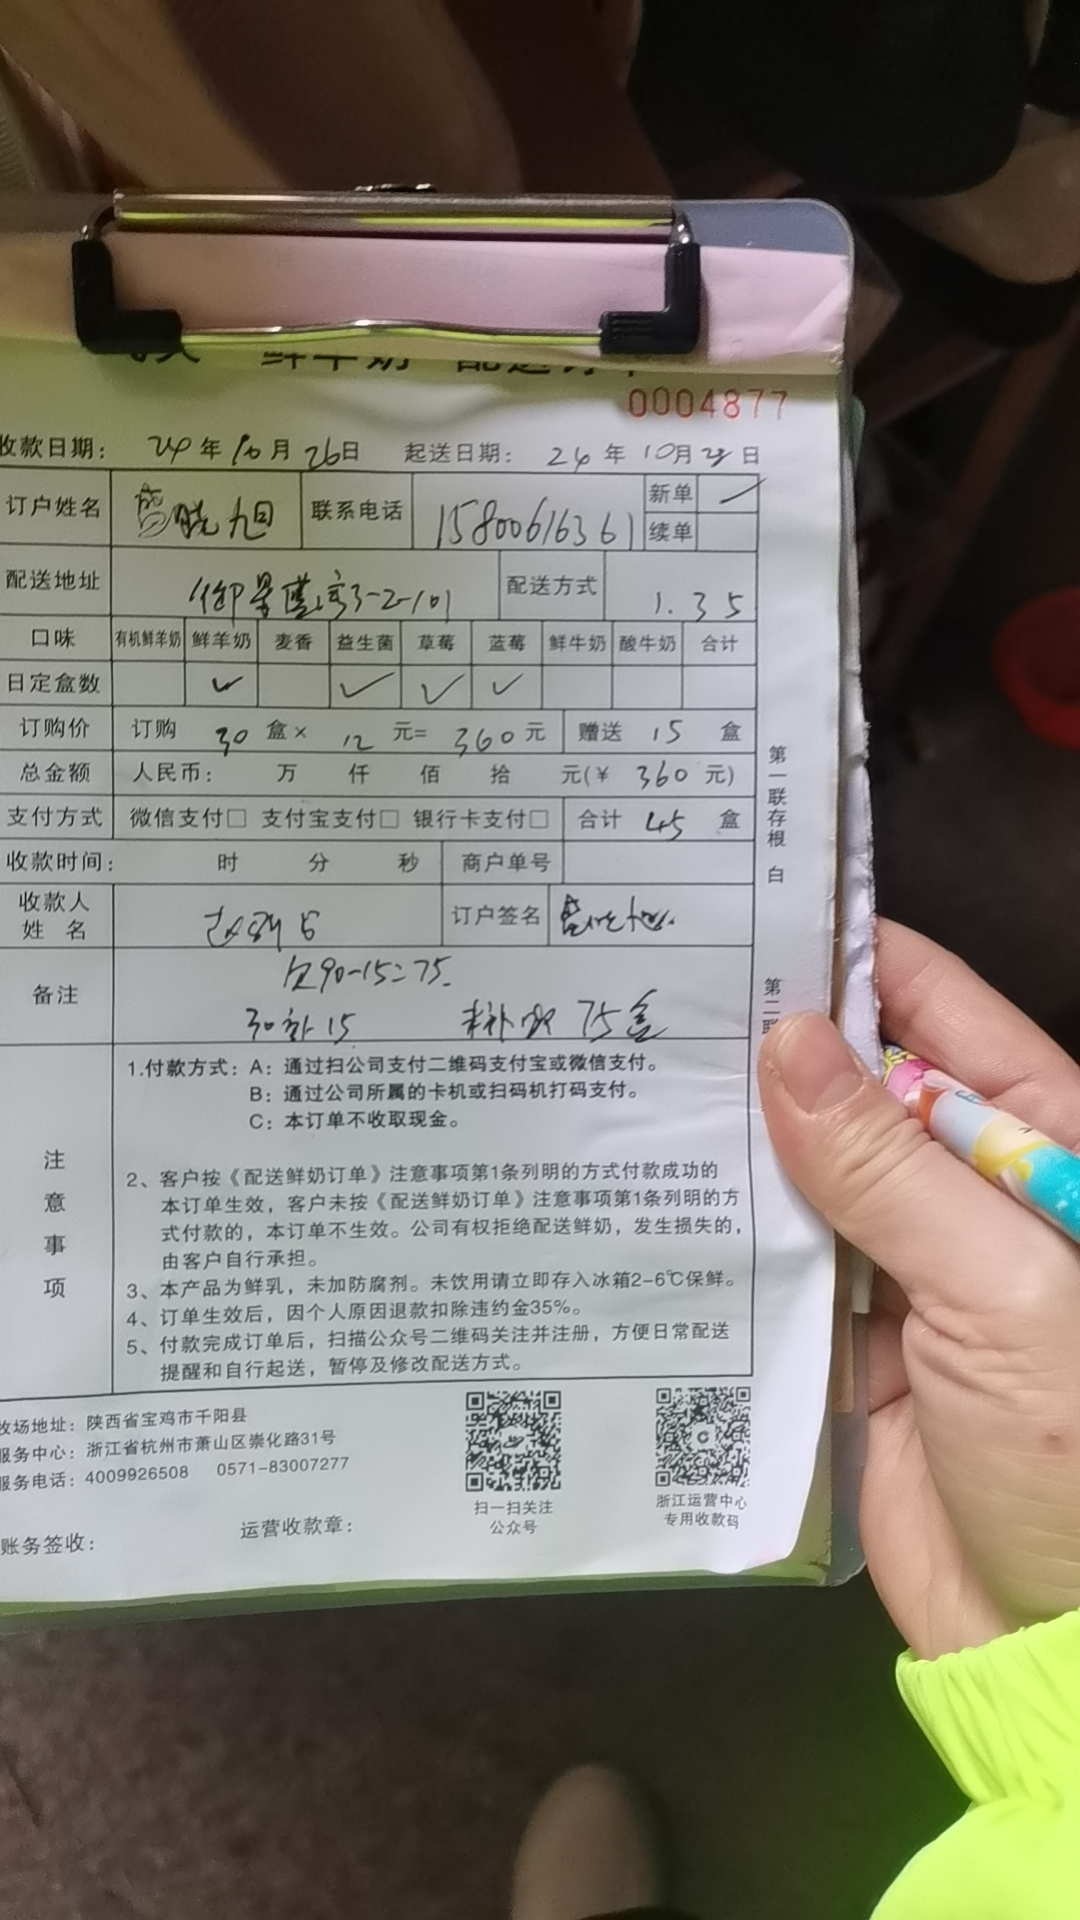 鲜羊奶 配送订单
0004877
收款日期: 24年10月26日 起送日期: 24年10月28日
订户姓名 晓旭 联系电话 15800616361 新单
续单
配送地址 御景蓝湾3-2-101 配送方式 1.35
口味 有机鲜羊奶 鲜羊奶 麦香 益生菌 草莓 蓝莓 鲜牛奶 酸牛奶 合计
日定盒数 ✓ ✓ ✓ ✓
订购价 订购 30 盒× 12 元= 360 元 赠送 15 盒
总金额 人民币: 万 仟 佰 拾 元(¥ 360 元)
支付方式 微信支付□ 支付宝支付□ 银行卡支付□ 合计 45 盒
收款时间: 时 分 秒 商户单号
收款人
姓 名 订户签名
备注 欠90-15=75.
30补15 75盒
注意事项
1.付款方式: A: 通过扫公司支付二维码支付宝或微信支付。
B: 通过公司所属的卡机或扫码机打码支付。
C: 本订单不收取现金。
2、客户按《配送鲜奶订单》注意事项第1条列明的方式付款成功的
本订单生效，客户未按《配送鲜奶订单》注意事项第1条列明的方
式付款的，本订单不生效。公司有权拒绝配送鲜奶，发生损失的，
由客户自行承担。
3、本产品为鲜乳，未加防腐剂。未饮用请立即存入冰箱2-6℃保鲜。
4、订单生效后，因个人原因退款扣除违约金35%。
5、付款完成订单后，扫描公众号二维码关注并注册，方便日常配送
提醒和自行起送，暂停及修改配送方式。
牧场地址: 陕西省宝鸡市千阳县
服务中心: 浙江省杭州市萧山区崇化路31号
服务电话: 4009926508 0571-83007277
扫一扫关注
公众号
浙江运营中心
专用收款码
账务签收: 运营收款章:
第一联存根 白
第二联